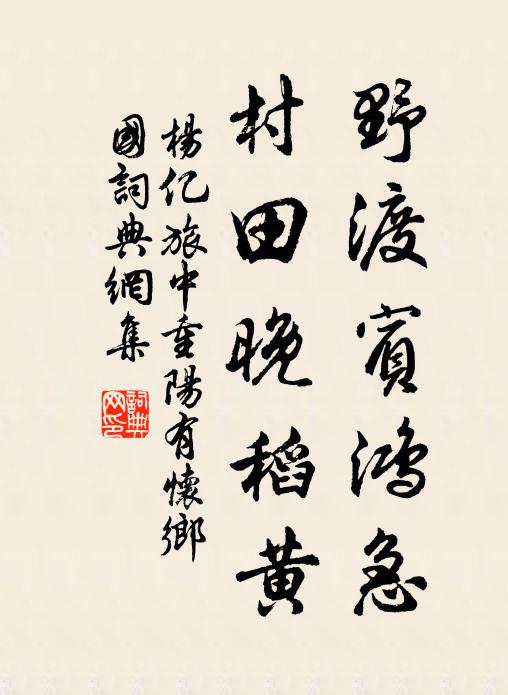 野渡賓鴻急
村田晚稻黃
楊億旅中重陽有懷鄉
國詞典網集
詞典
网印